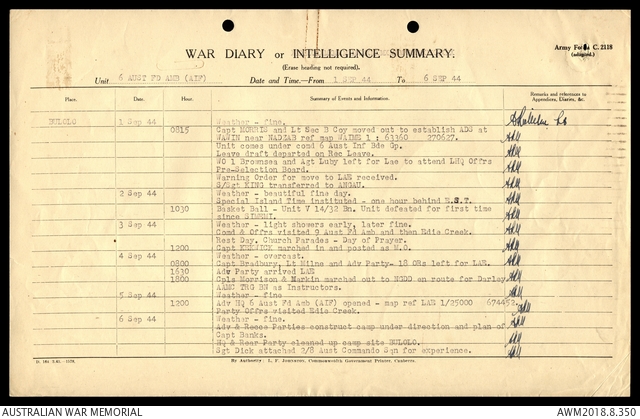 Army Form C. 2118
(adapted.)
WAR DIARY or INTELLIGENCE SUMMARY.
(Erase heading not required).
Unit 6 AUST FD AMB (AIF) Date and Time.—From 1 SEP 44 To 6 SEP 44
Place. Date Hour. Summary of Events and Information. Remarks and references to Appendices, Diaries, &c.
BULOLO 1 Sep 44 Weather - fine.
0815 Capt MORRIS and Lt Sec B Coy moved out to establish ADS at
WAWIN near NADZAB ref map WAIME 1 : 63360 270627.
Unit comes under comd 6 Aust Inf Bde Gp.
Leave draft departed on Rec Leave.
WO 1 Brownsea and Agt Luby left for Lae to attend LHQ Offrs
Pre-Selection Board.
Warning Order for move to LAE received.
S/Sgt KING transferred to ANGAU.
2 Sep 44 Weather - beautiful fine day.
Special Island Time instituted - one hour behind E.S.T.
1030 Basket Ball - Unit V 14/32 Bn. Unit defeated for first time
since
3 Sep 44 Weather - light showers early, later fine.
Comd & Offrs visited 9 Aust Fd Amb and then Edie Creek.
Rest Day. Church Parades - Day of Prayer.
1200 Capt marched in and posted as M.O.
4 Sep 44 Weather - overcast.
0800 Capt Bradbury, Lt Milne and Adv Party- 18 ORs left for LAE.
1630 Adv Party arrived LAE
1800 Cpls Morrison & Markin marched out to NGDD en route for Darley
AAMC TRG BN as Instructors.
5 Sep 44 Weather - fine
1200 Adv HQ 6 Aust Fd Amb (AIF) opened - map ref LAE 1/25000 674452.
Party Offrs visited Edie Creek.
6 Sep 44 Weather - fine.
Adv & Recce Parties construct camp under direction and plan of
Capt Banks.
HQ & Rear Party cleaned up camp site BULOLO.
Sgt Dick attached 2/8 Aust Commando Sqn for experience.
By Authority: L. F. Johnston, Commonwealth Government Printer, Canberra.
AUSTRALIAN WAR MEMORIAL AWM2018.8.350